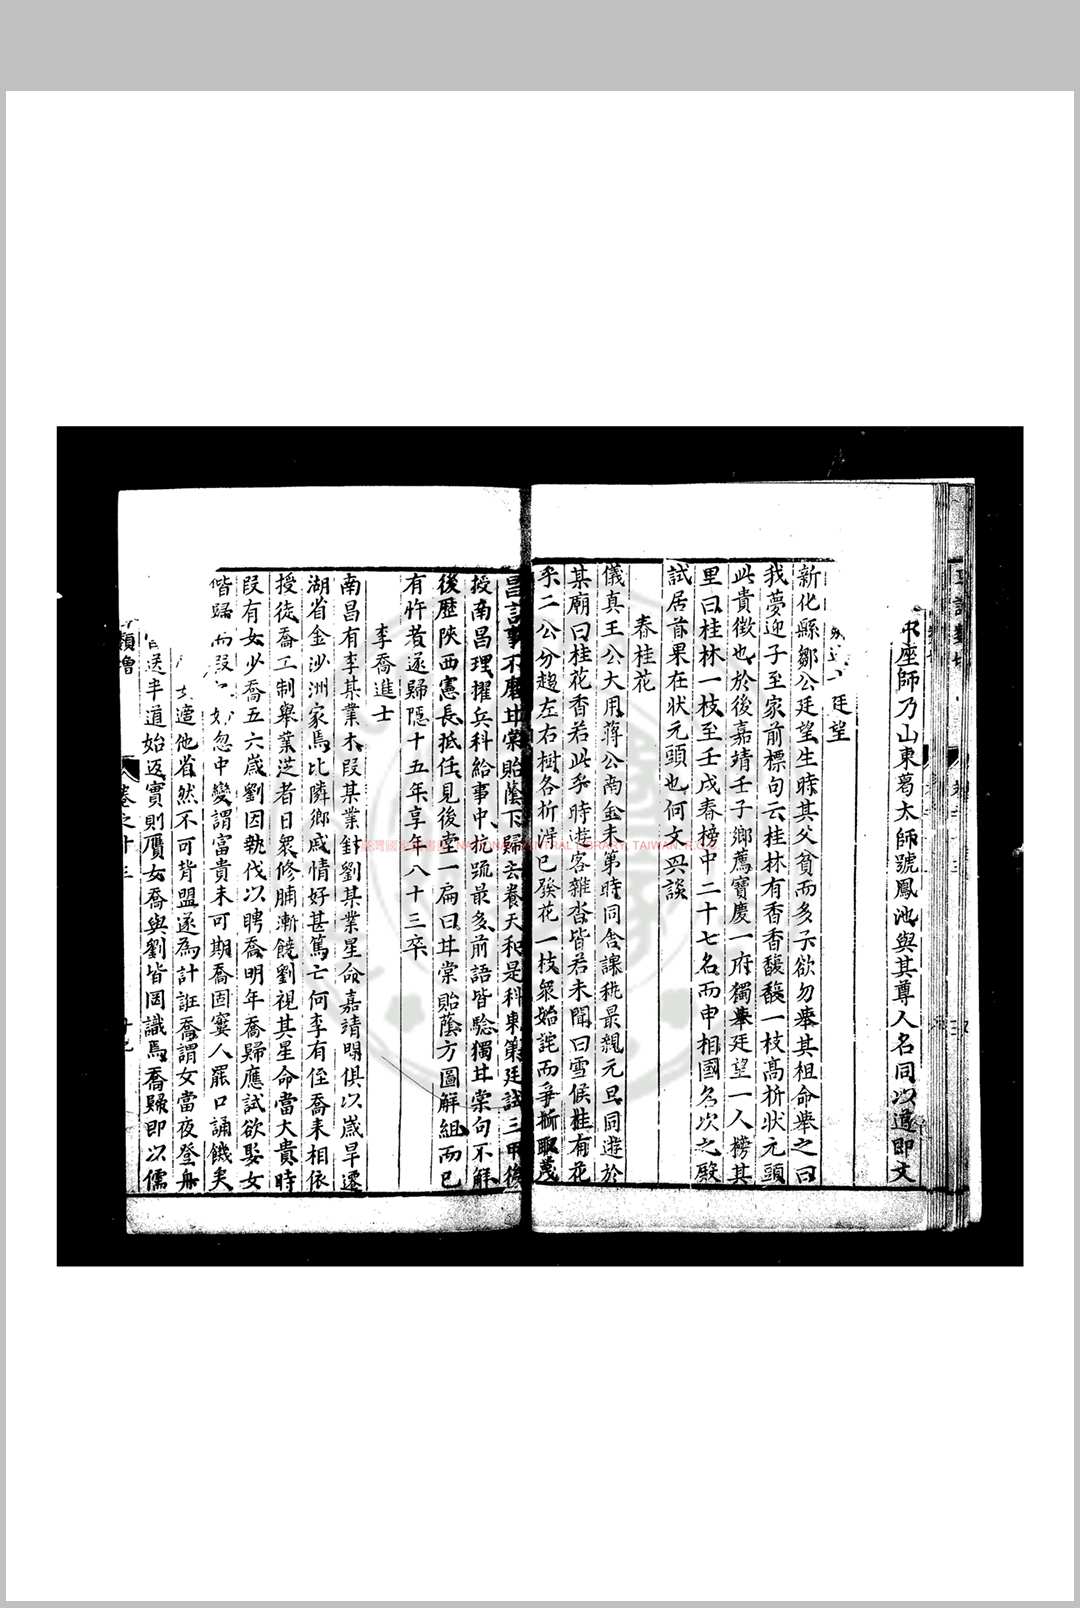 座師乃山東葛太師號鳳池與其尊人名同以遵即文
廷望
新化縣鄒公廷望生時其父貧而多子欲勿舉其祖命舉之曰
我夢迎子至家前標句云桂林有香香馥馥一枝高折狀元頭
此貴徵也於後嘉靖壬子鄉薦寶慶一府獨舉廷望一人榜其
里曰桂林一枝至壬戌春榜中二十七名而申相國名次之殿
試居首果在狀元頭也何文與談
春桂花
儀真王公大用蔣公南金未第時同舍課秇最親元旦同遊於
某廟曰桂花香若此乎時遊客雜沓皆若未聞曰雪候桂有花
乎二公分趨左右樹各折浔已發花一枝衆始詫而爭折取蔑
昌訪事不磨甘棠貽蔭下歸去養天和是科東第廷試三甲後
授南昌理擢兵科給事中抗疏最多前語皆騐獨甘棠句不解
後歷陝西憲長抵任見後堂一扁曰甘棠貽蔭方圖解組而已
有忤者遂歸隱十五年享年八十三卒
李喬進士
南昌有李某業木段某業針劉某業星命嘉靖朝俱以歲旱遷
湖省金沙洲家焉比隣鄉戚情好甚篤亡何李有侄喬来相依
授徒喬工制舉業涖者日衆修脯漸饒劉視其星命當大貴時
段有女少喬五六歲劉因執伐以聘喬明年喬歸應試欲娶女
偕歸而段忽中變謂富貴未可期喬固窶人罷口誦饑矣
遣他省然不可背盟遂為計誑喬謂女當夜登舟
送半道始返實則贗女喬與劉皆罔識焉喬歸即以儒
類增
卷之十三
十九